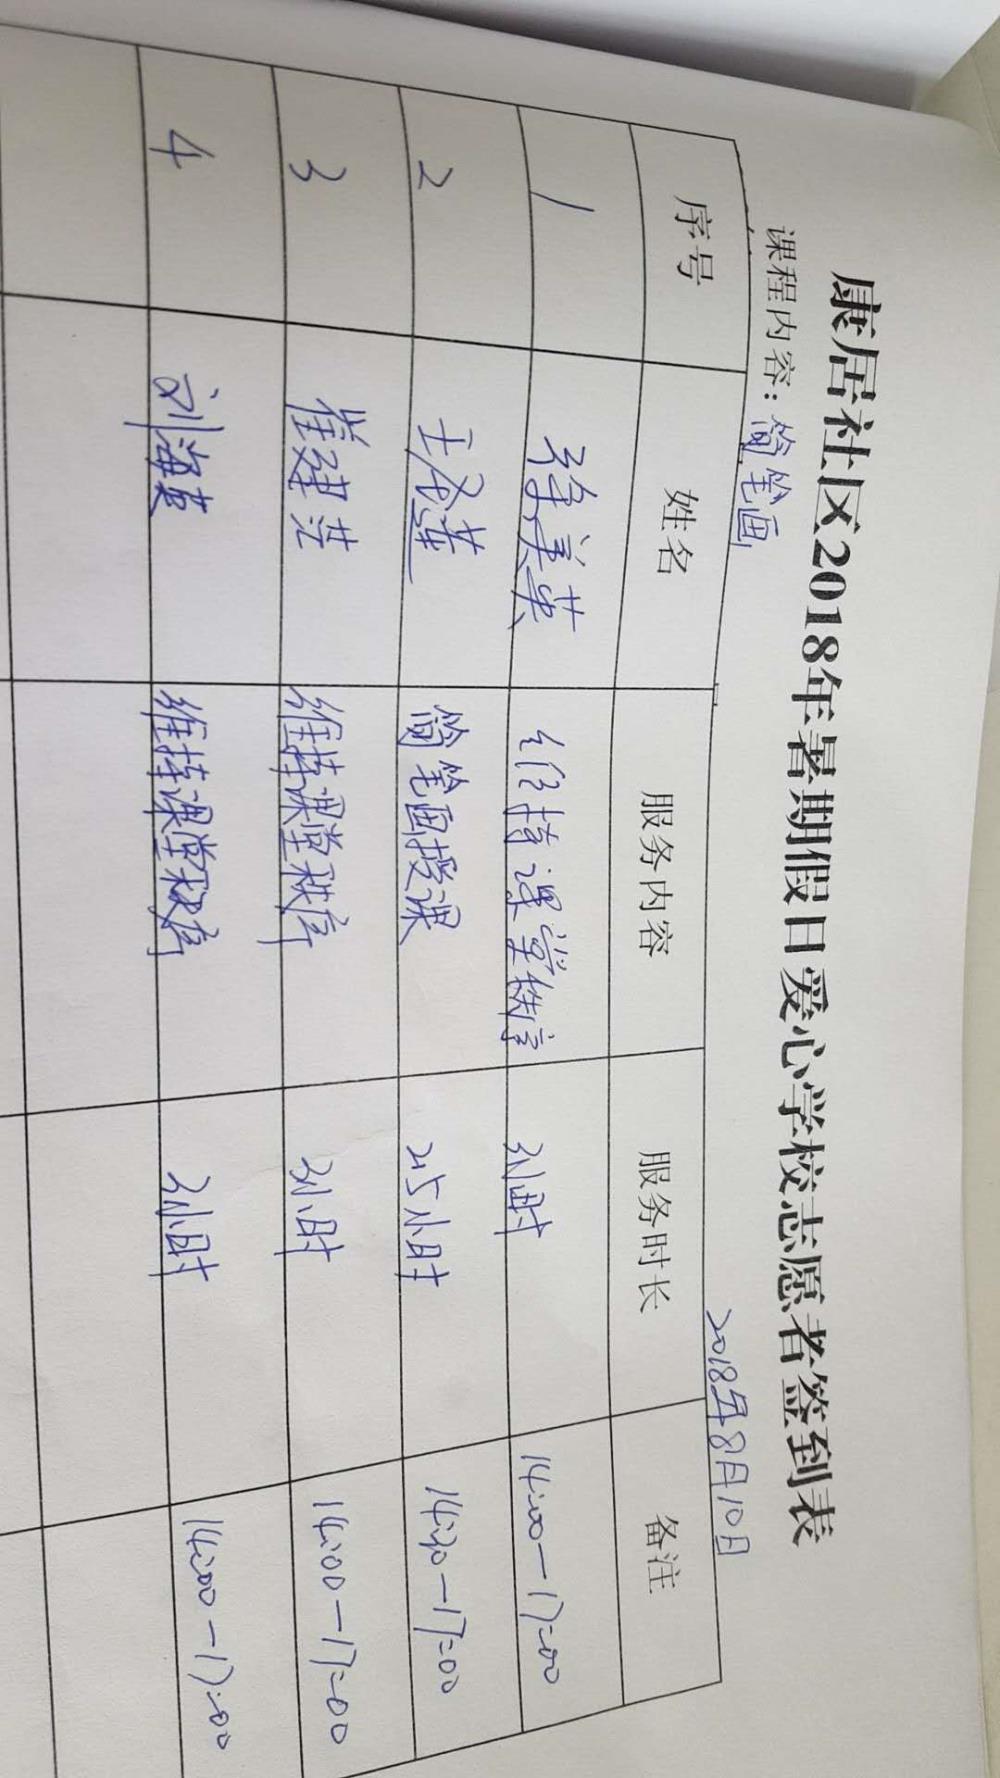 康居社区2018年暑期假日爱心学校志愿者签到表
课程内容：简笔画 2018年8月10日
序号 姓名 服务内容 服务时长 备注
1 徐美英 维持课堂秩序 3小时 14:00-17:00
2 简笔画授课 2.5小时 14:30-17:00
3 崔建芸 维持课堂秩序 3小时 14:00-17:00
4 刘海燕 维持课堂秩序 3小时 14:00-17:00